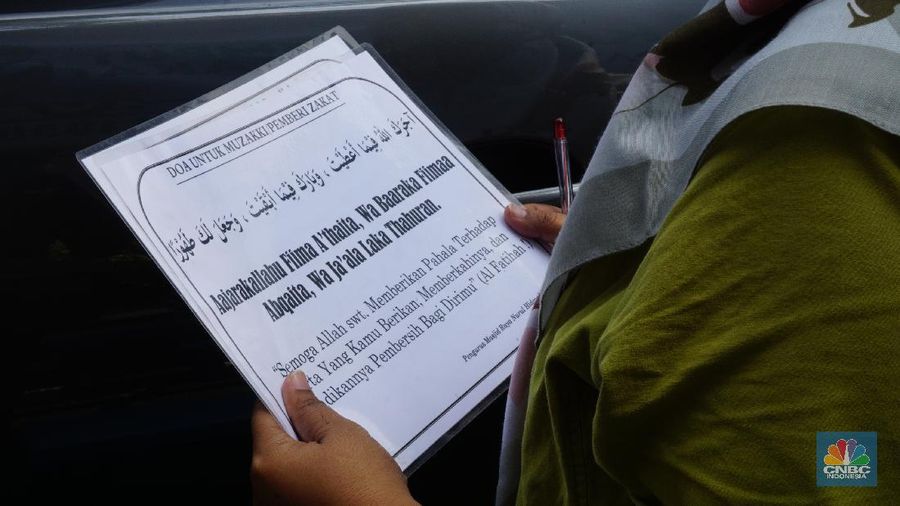 DOA UNTUK MUZAKKI/PEMBERI ZAKAT
آجَرَكَ اللهُ فِيْمَا أَعْطَيْتَ ، وَبَارَكَ فِيْمَا أَبْقَيْتَ ، وَجَعَلَ لَكَ طَهُوْرًا
Aajarakallahu Fiima A'thaita, Wa Baaraka Fiimaa
Abqaita, Wa Ja'ala Laka Thahuran.
"Semoga Allah swt. Memberikan Pahala Terhadap
Yang Kamu Berikan, Memberkahinya, dan
dikannya Pembersih Bagi Dirimu" (Al Fatihah
Pengurus Masjid Raya Nurul
CNBC
INDONESIA